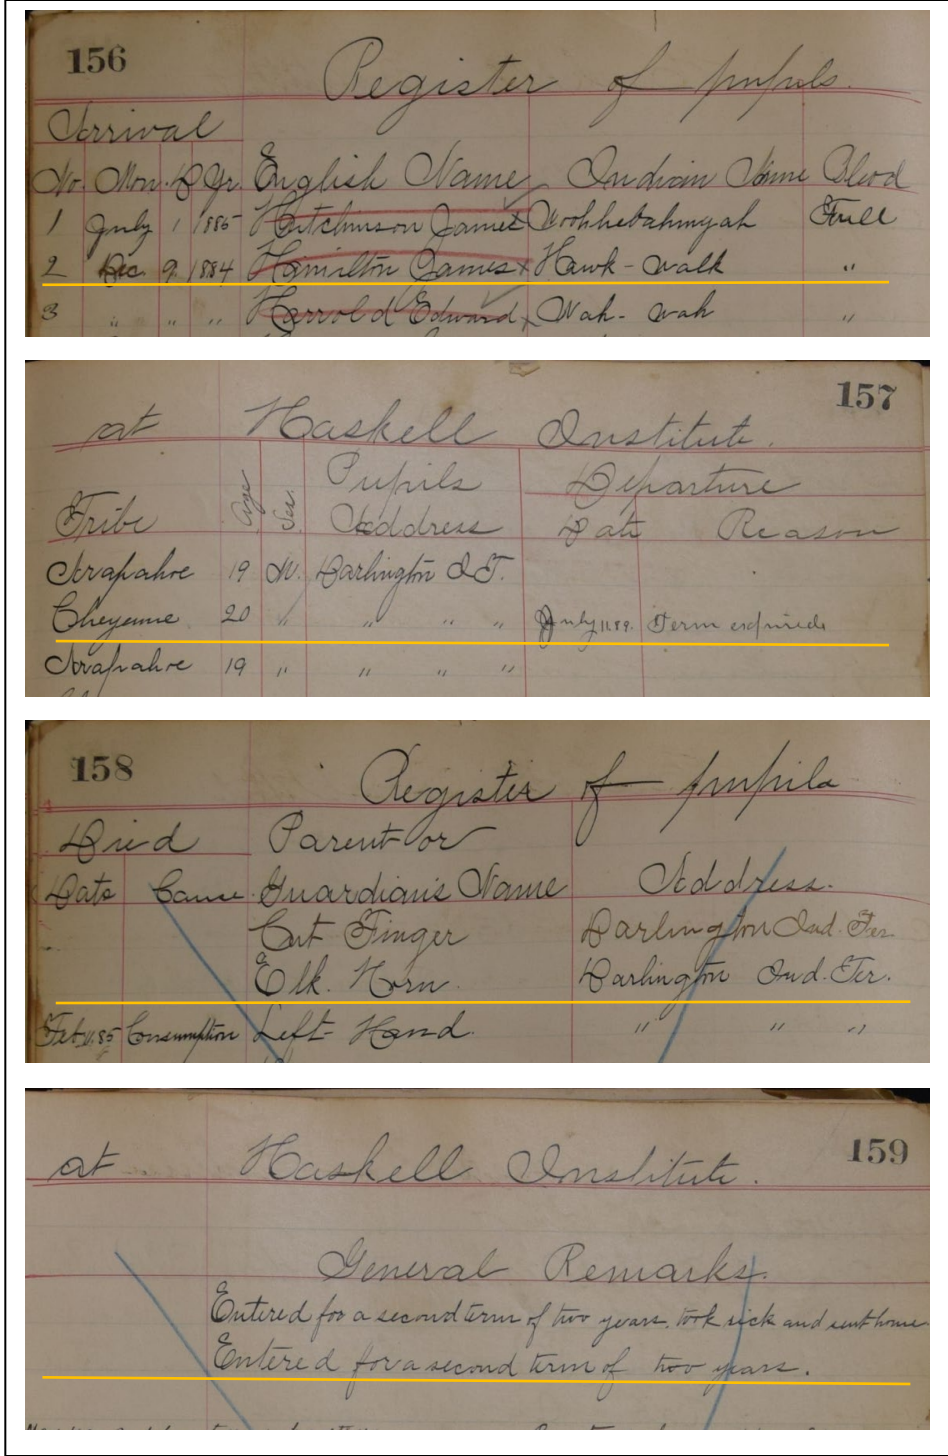 156 Register of pupils.
Arrival
No. Mon. D Yr. English Name Indian Name Blood
1 July 1 1885 Hutchinson James Full
2 Dec. 9 1884 Hamilton James Hawk-walk "
3 " " " Harrold Edward Wah-wah "
157
at Haskell Institute.
Pupils Departure
Tribe Age Sex. Address Date Reason
Arapahoe 19 M. Darlington I.T.
Cheyenne 20 " " " " July 11 89. Term
Arapahoe 19 " " " "
158 Register of pupils
Died Parent or
Date Cause Guardian's Name Address.
Cut Finger Darlington Ind. Ter
Elk. Horn. Darlington Ind. Ter.
Feb 11. 85 Consumption Left-Hand. " " "
159
at Haskell Institute.
General Remarks.
Entered for a second term of two years, took sick and sent home
Entered for a second term of two years.